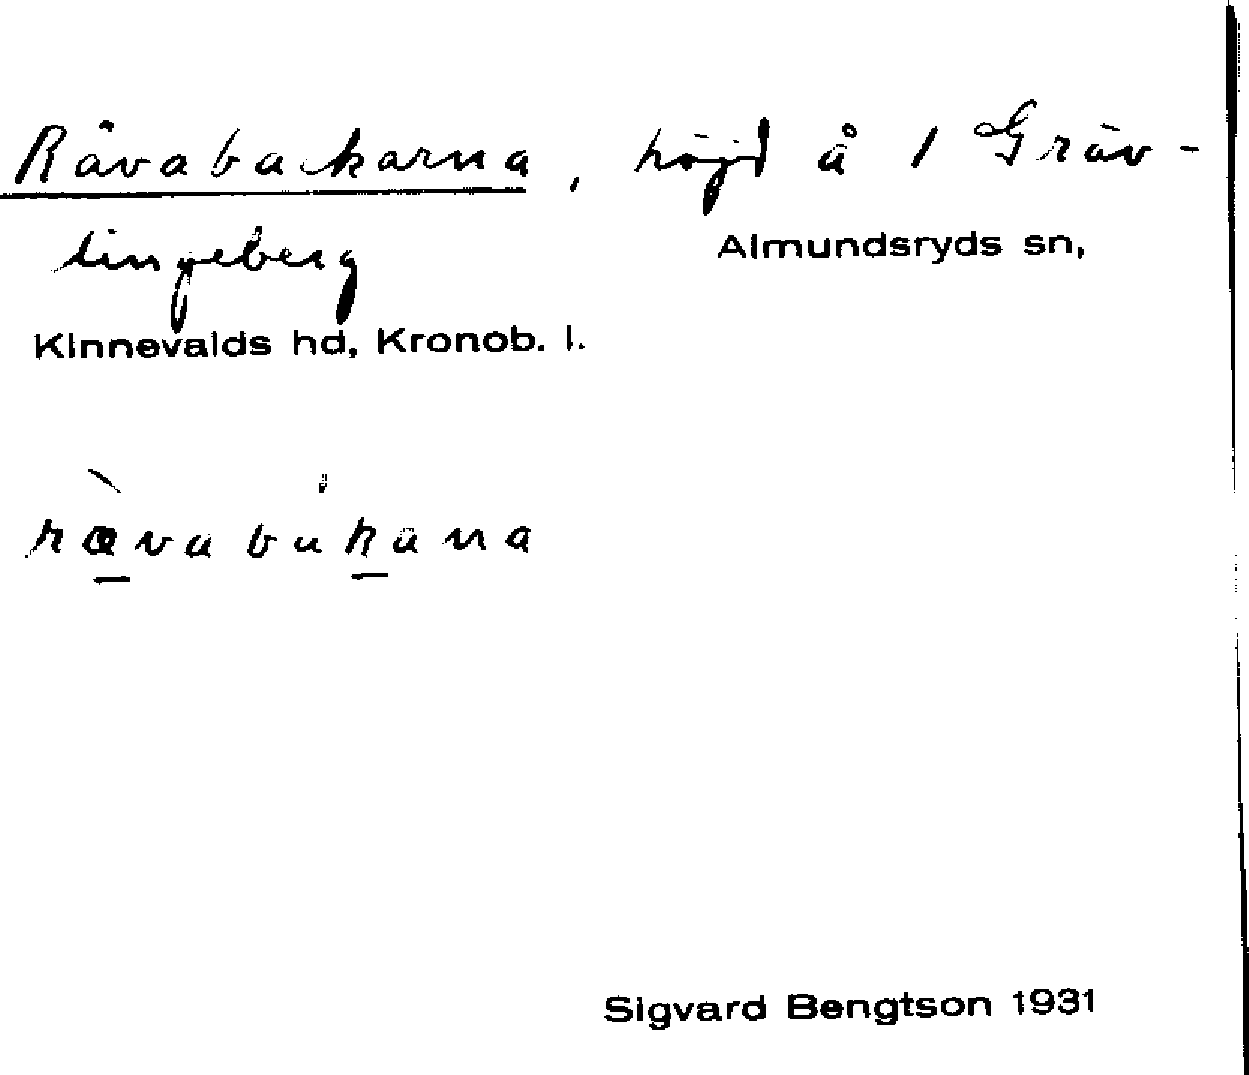 Rävabackarna, höjd å 1 Gräv-
lingeberg
Almundsryds sn,
Kinnevalds hd, Kronob. l.
rævabakana
Sigvard Bengtson 1931